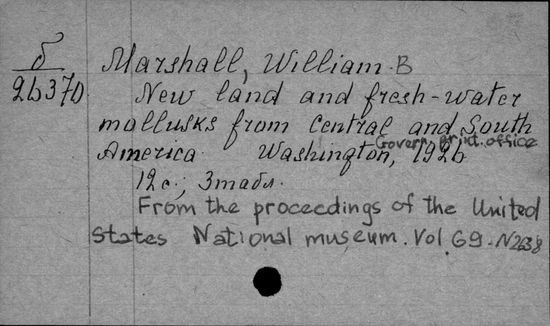 δ
26370.
Marshall, William B
New land and fresh-water
mollusks from Central and South
America. Washington, Govern. print. office 1926
12 c.; 3
From the proceedings of the United
States National museum. Vol 69. N2638